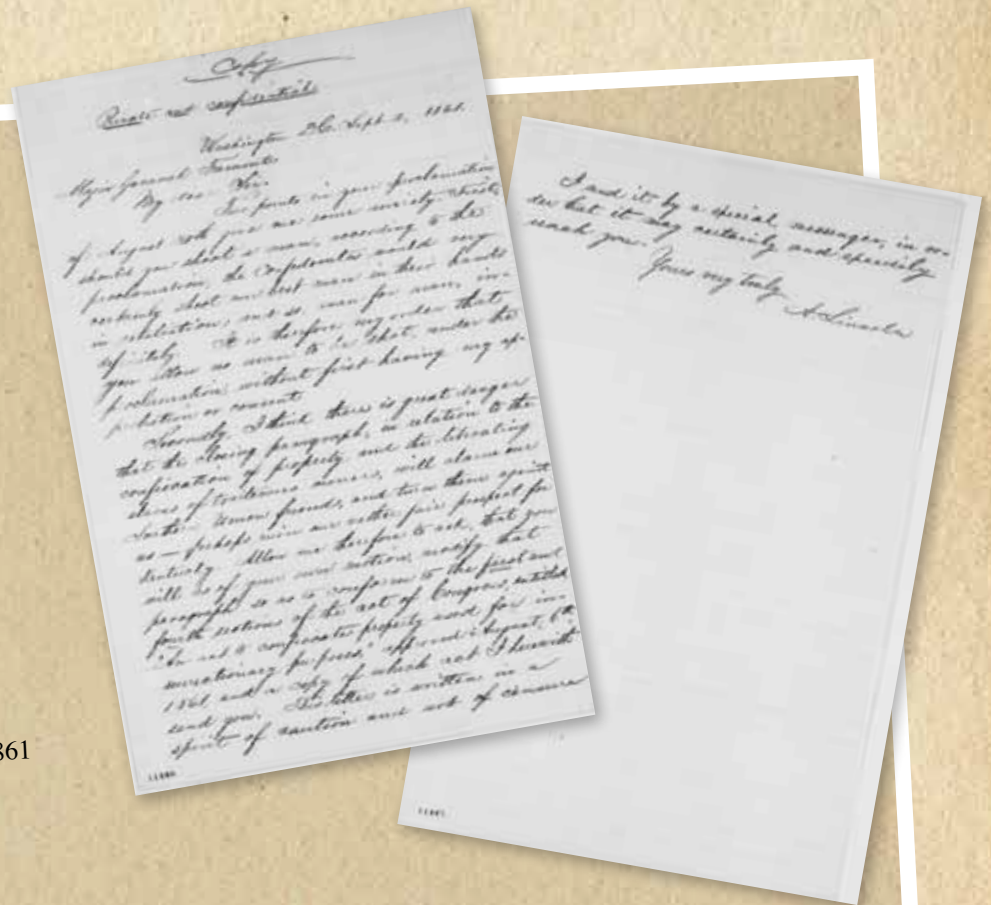 Copy
Private and confidential
Washington D.C. Sept. 2, 1861.
Major General Fremont:
My dear Sir:
Two points in your proclamation
of August 30th give me some anxiety. First,
should you shoot a man, according to the
proclamation, the Confederates would very
certainly shoot our best man in their hands
in retaliation; and so, man for man, in-
definitely. It is therefore my order that
you allow no man to be shot, under the
proclamation, without first having my ap-
probation or consent.
Secondly, I think there is great danger
that the closing paragraph, in relation to the
confiscation of property, and the liberating
slaves of traitorous owners, will alarm our
Southern Union friends, and turn them against
us — perhaps ruin our rather fair prospect for
Kentucky. Allow me therefore to ask, that you
will as of your own motion, modify that
paragraph so as to conform to the first and
fourth sections of the act of Congress, entitled,
"An act to confiscate property used for in-
surrectionary purposes," approved August, 6th,
1861, and a copy of which act I herewith
send you. This letter is written in a
spirit of caution and not of censure
I send it by a special messenger, in or-
der that it may certainly and speedily
reach you.
Yours very truly
A. Lincoln
861